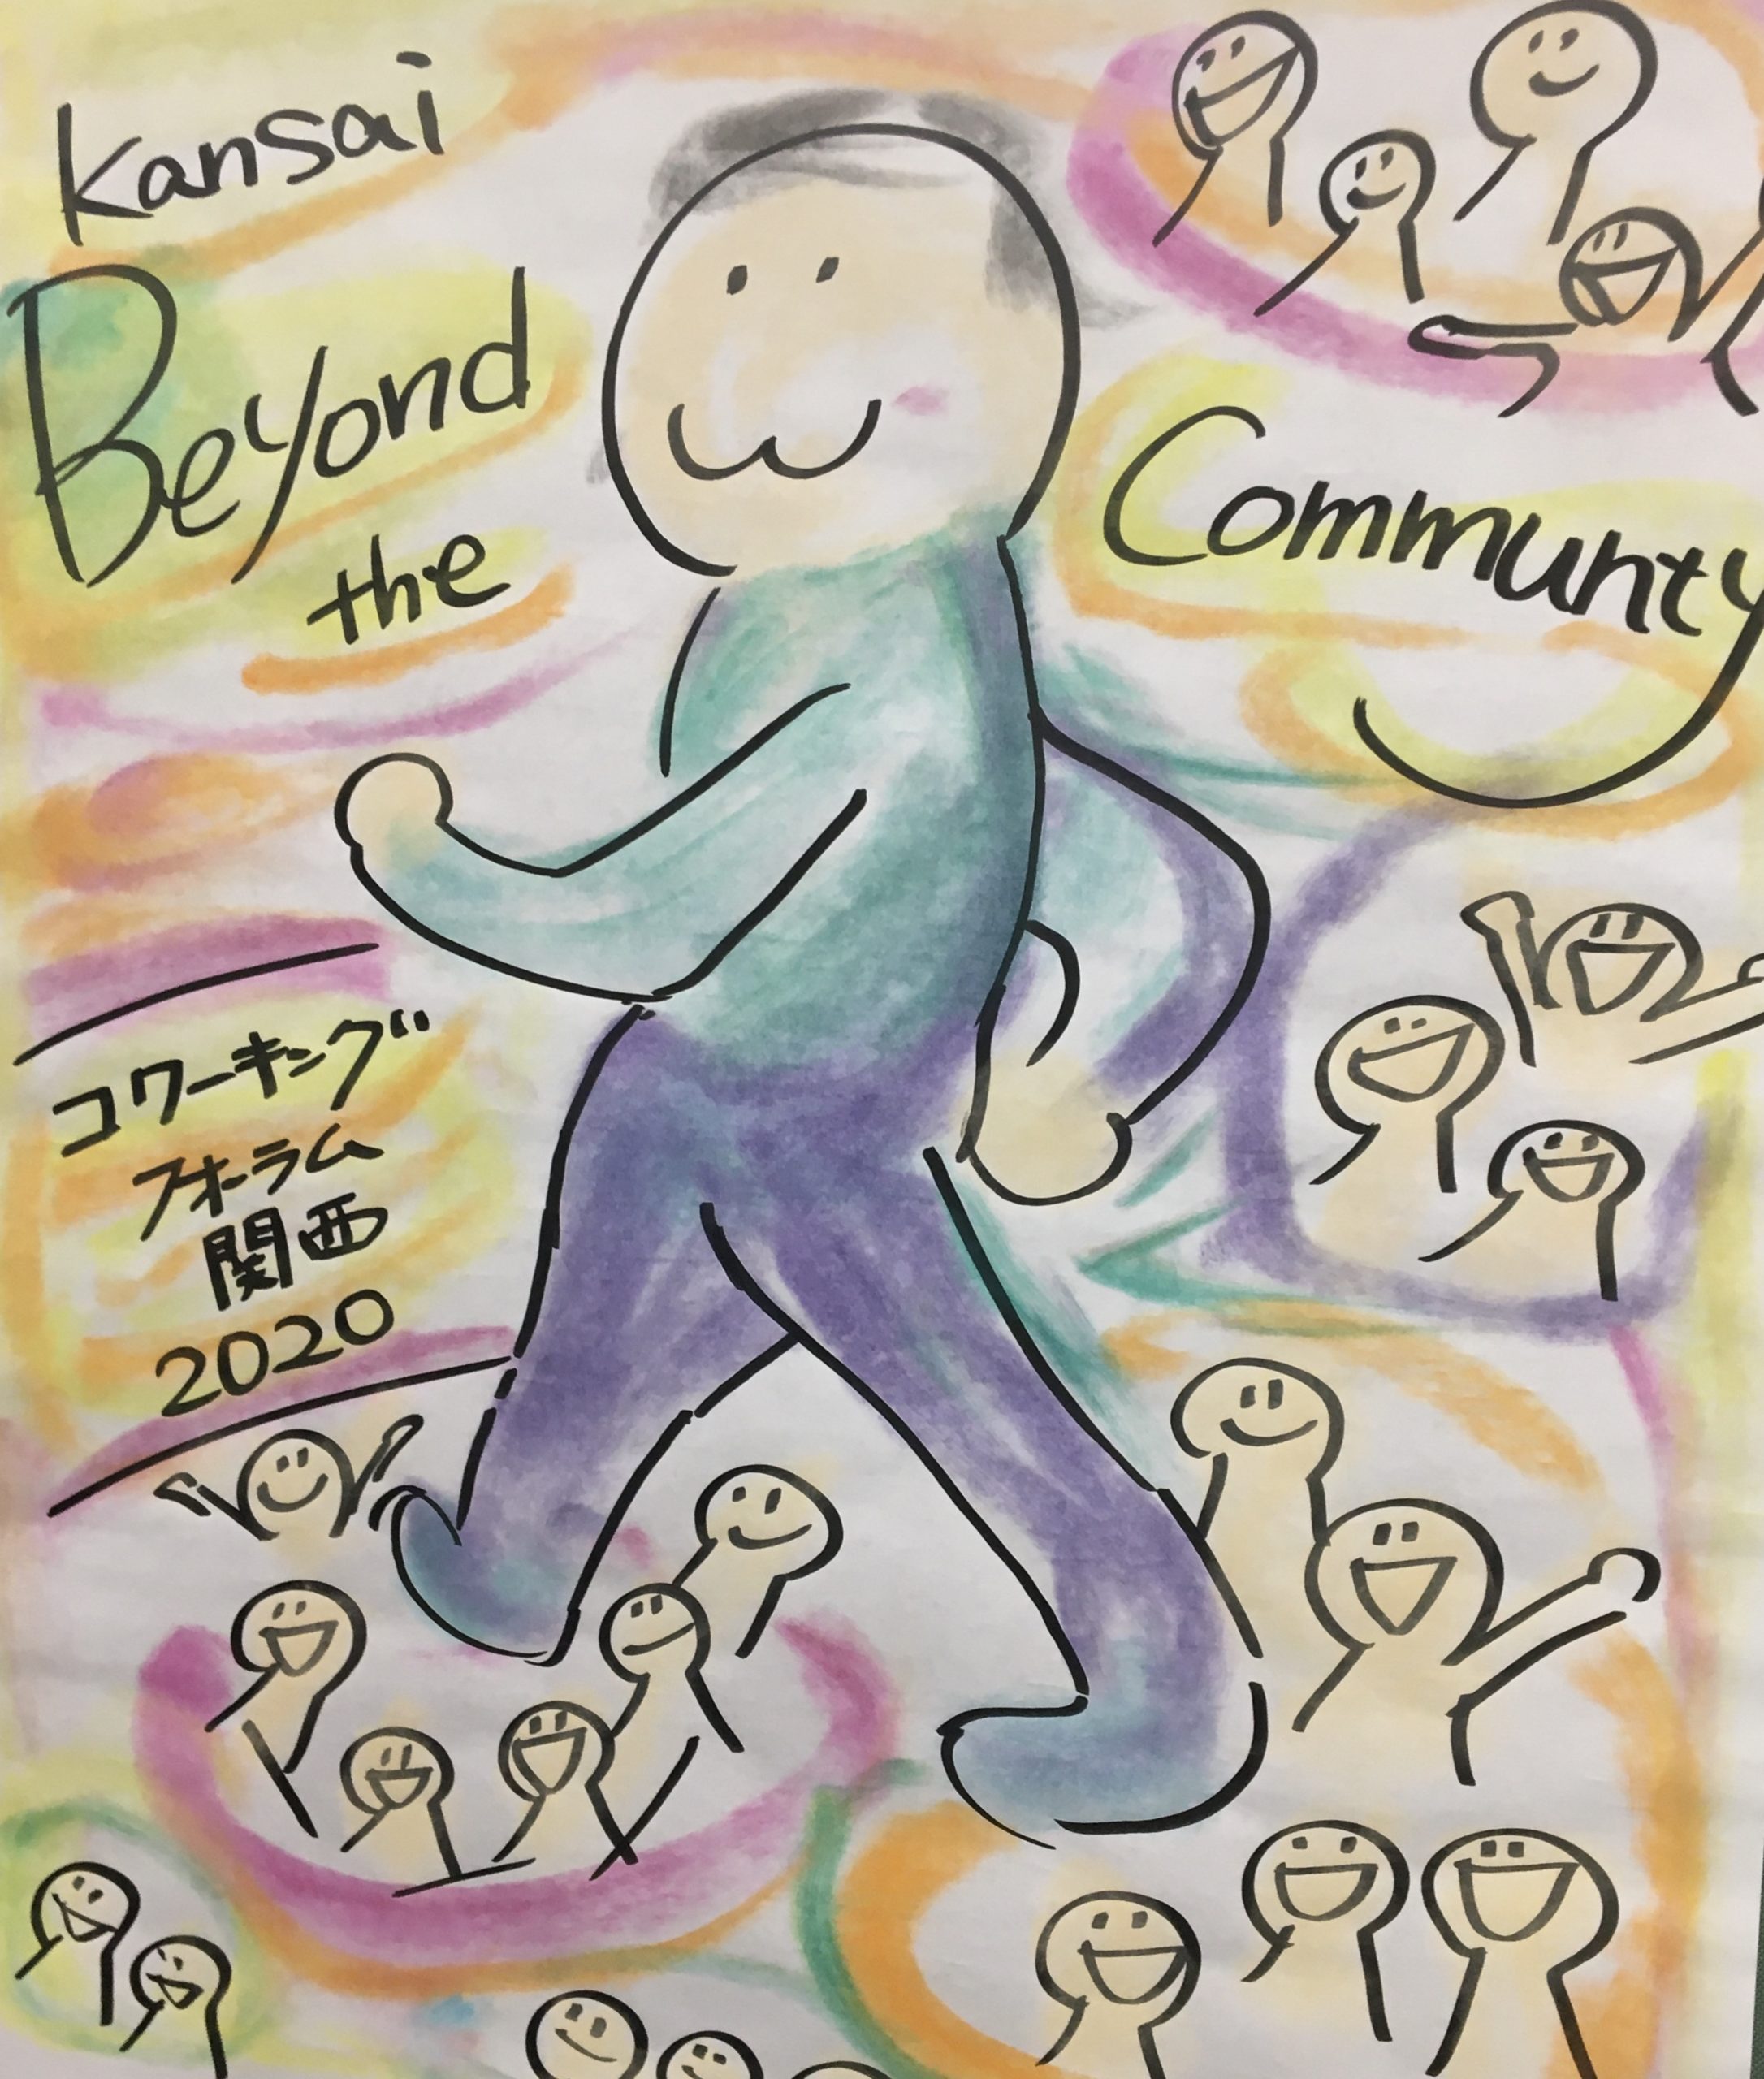 Kansai
Beyond
the
Communty
コワーキング
フォーラム
関西
2020